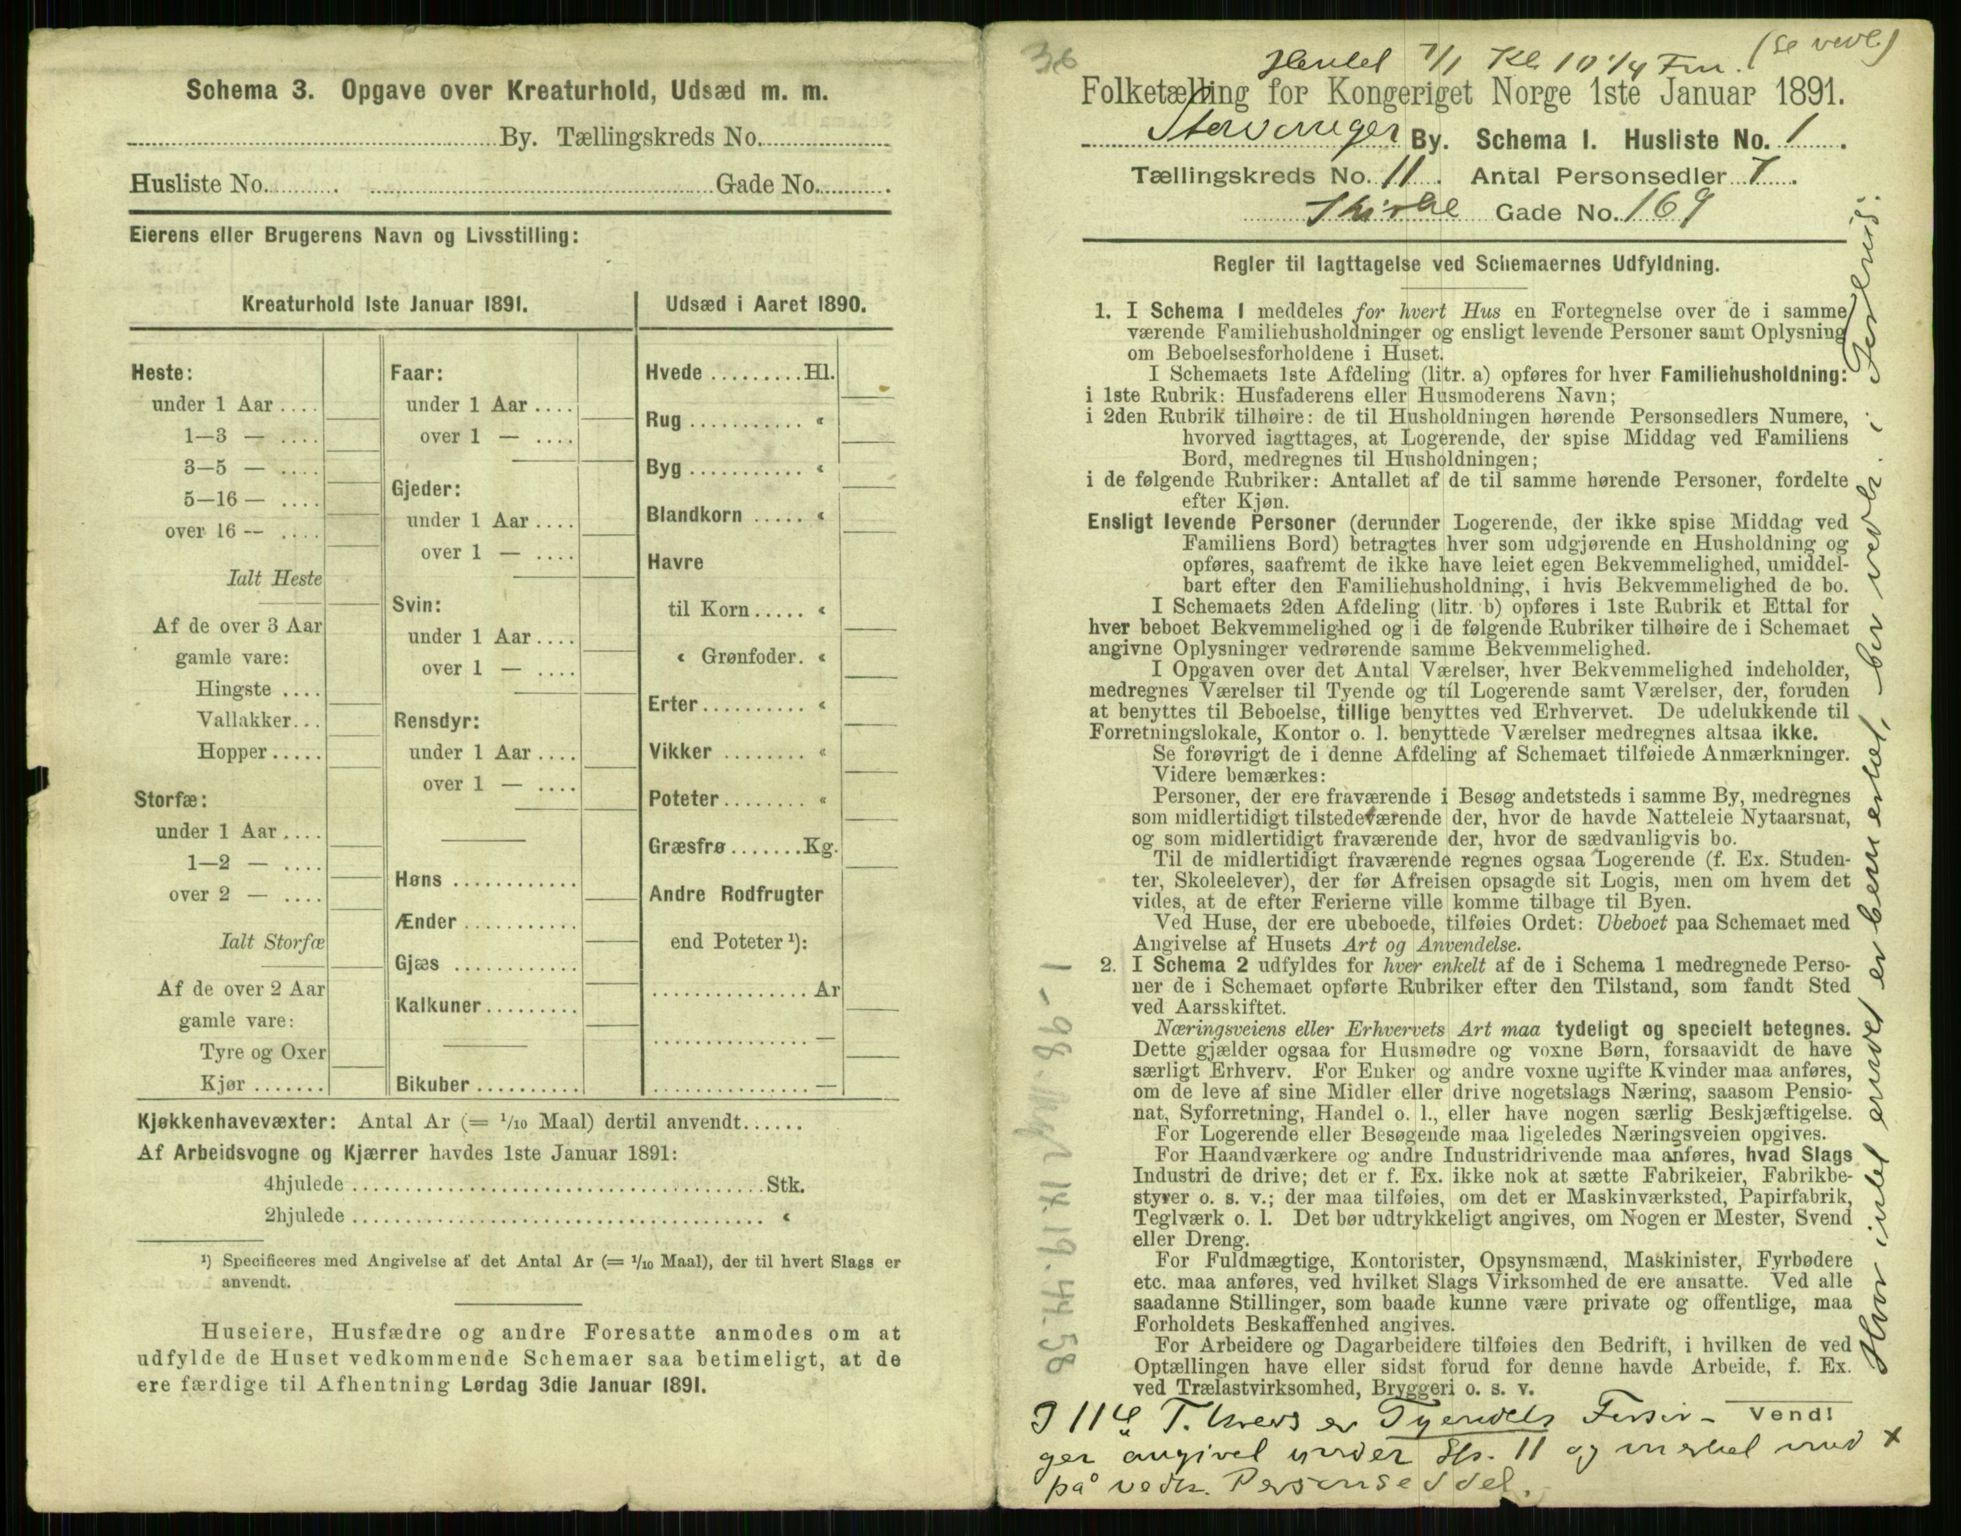 Schema 3. Opgave over Kreaturhold, Udsæd m. m.
By. Tællingskreds No.
Husliste No. Gade No.
Eierens eller Brugerens Navn og Livsstilling:
Kreaturhold 1ste Januar 1891.
Heste:
under 1 Aar....
1—3 — ....
3—5 — ....
5—16 — ....
over 16 -- ....
Ialt Heste
Af de over 3 Aar
gamle vare:
Hingste ....
Vallakker...
Hopper.....
Storfæ:
under 1 Aar....
1—2 — ....
over 2 — ....
Ialt Storfæ
Af de over 2 Aar
gamle vare:
Tyre og Oxer
Kjør.......
Faar:
under 1 Aar....
over 1 — ....
Gjeder:
under 1 Aar....
over 1 — ....
Svin:
under 1 Aar....
over 1 — ....
Rensdyr:
under 1 Aar....
over 1 — ....
Høns............
Ænder...........
Gjæs ............
Kalkuner.........
Bikuber..........
Udsæd i Aaret 1890.
Hvede.........Hl.
Rug........... «
Byg........... «
Blandkorn ..... «
Havre
til Korn..... «
« Grønfoder. «
Erter.......... «
Vikker ........ «
Poteter........ «
Græsfrø.......Kg.
Andre Rodfrugter
end Poteter ¹):
...............Ar
............... —
............... —
Kjøkkenhavevæxter: Antal Ar (= 1/10 Maal) dertil anvendt......
Af Arbeidsvogne og Kjærrer havdes 1ste Januar 1891:
4hjulede........................................Stk.
2hjulede........................................ «
¹) Specificeres med Angivelse af det Antal Ar (= 1/10 Maal), der til hvert Slags er
anvendt.
Huseiere, Husfædre og andre Foresatte anmodes om at
udfylde de Huset vedkommende Schemaer saa betimeligt, at de
ere færdige til Afhentning Lørdag 3die Januar 1891.
36
Hentet 7/1 Kl. 10 1/4 Fm. (se vedl.)
Folketælling for Kongeriget Norge 1ste Januar 1891.
Stavanger By. Schema 1. Husliste No. 1.
Tællingskreds No. 11. Antal Personsedler 7.
Gade No. 169
Regler til Iagttagelse ved Schemaernes Udfyldning.
1. I Schema 1 meddeles for hvert Hus en Fortegnelse over de i samme
værende Familiehusholdninger og ensligt levende Personer samt Oplysning
om Beboelsesforholdene i Huset.
I Schemaets 1ste Afdeling (litr. a) opføres for hver Familiehusholdning:
i 1ste Rubrik: Husfaderens eller Husmoderens Navn;
i 2den Rubrik tilhøire: de til Husholdningen hørende Personsedlers Numere,
hvorved iagttages, at Logerende, der spise Middag ved Familiens
Bord, medregnes til Husholdningen;
i de følgende Rubriker: Antallet af de til samme hørende Personer, fordelte
efter Kjøn.
Ensligt levende Personer (derunder Logerende, der ikke spise Middag ved
Familiens Bord) betragtes hver som udgjørende en Husholdning og
opføres, saafremt de ikke have leiet egen Bekvemmelighed, umiddel-
bart efter den Familiehusholdning, i hvis Bekvemmelighed de bo.
I Schemaets 2den Afdeling (litr. b) opføres i 1ste Rubrik et Ettal for
hver beboet Bekvemmelighed og i de følgende Rubriker tilhøire de i Schemaet
angivne Oplysninger vedrørende samme Bekvemmelighed.
I Opgaven over det Antal Værelser, hver Bekvemmelighed indeholder,
medregnes Værelser til Tyende og til Logerende samt Værelser, der, foruden
at benyttes til Beboelse, tillige benyttes ved Erhvervet. De udelukkende til
Forretningslokale, Kontor o. l. benyttede Værelser medregnes altsaa ikke.
Se forøvrigt de i denne Afdeling af Schemaet tilføiede Anmærkninger.
Videre bemærkes:
Personer, der ere fraværende i Besøg andetsteds i samme By, medregnes
som midlertidigt tilstedeværende der, hvor de havde Natteleie Nytaarsnat,
og som midlertidigt fraværende der, hvor de sædvanligvis bo.
Til de midlertidigt fraværende regnes ogsaa Logerende (f. Ex. Studen-
ter, Skoleelever), der før Afreisen opsagde sit Logis, men om hvem det
vides, at de efter Ferierne ville komme tilbage til Byen.
Ved Huse, der ere ubeboede, tilføies Ordet: Ubeboet paa Schemaet med
Angivelse af Husets Art og Anvendelse.
2. I Schema 2 udfyldes for hver enkelt af de i Schema 1 medregnede Perso-
ner de i Schemaet opførte Rubriker efter den Tilstand, som fandt Sted
ved Aarsskiftet.
Næringsveiens eller Erhvervets Art maa tydeligt og specielt betegnes.
Dette gjælder ogsaa for Husmødre og voxne Børn, forsaavidt de have
særligt Erhverv. For Enker og andre voxne ugifte Kvinder maa anføres,
om de leve af sine Midler eller drive nogetslags Næring, saasom Pensio-
nat, Syforretning, Handel o. l., eller have nogen særlig Beskjæftigelse.
For Logerende eller Besøgende maa ligeledes Næringsveien opgives.
For Haandværkere og andre Industridrivende maa anføres, hvad Slags
Industri de drive; det er f. Ex. ikke nok at sætte Fabrikeier, Fabrikbe-
styrer o. s. v.; der maa tilføies, om det er Maskinværksted, Papirfabrik,
Teglværk o. l. Det bør udtrykkeligt angives, om Nogen er Mester, Svend
eller Dreng.
For Fuldmægtige, Kontorister, Opsynsmænd, Maskinister, Fyrbødere
etc. maa anføres, ved hvilket Slags Virksomhed de ere ansatte. Ved alle
saadanne Stillinger, som baade kunne være private og offentlige, maa
Forholdets Beskaffenhed angives.
For Arbeidere og Dagarbeidere tilføies den Bedrift, i hvilken de ved
Optællingen have eller sidst forud for denne havde Arbeide, f. Ex.
ved Trælastvirksomhed, Bryggeri o. s. v.
Vend!
I 11te T. kreds er Tyendets Forsør-
ger angivet under Hs. 11 og merket med x
på vedk. Personseddel.
Hvor intet andet er bemerket, bor vedk. i
17.19.44.58